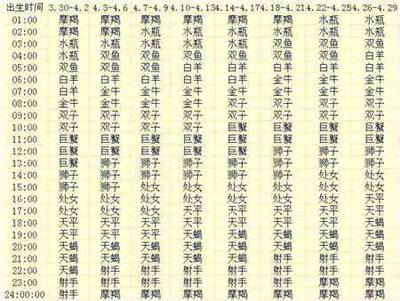 出生时间 3.30-4.2 4.3-4.6 4.7-4.9 4.10-4.13 4.14-4.17 4.18-4.21 4.22-4.25 4.26-4.29
01:00 摩羯 摩羯 摩羯 摩羯 摩羯 摩羯 水瓶 水瓶
02:00 摩羯 摩羯 摩羯 水瓶 水瓶 水瓶 水瓶 水瓶
03:00 水瓶 水瓶 水瓶 水瓶 水瓶 双鱼 双鱼 双鱼
04:00 水瓶 双鱼 双鱼 双鱼 双鱼 双鱼 双鱼 白羊
05:00 双鱼 双鱼 双鱼 白羊 白羊 白羊 白羊 白羊
06:00 白羊 白羊 白羊 白羊 白羊 金牛 金牛 金牛
07:00 白羊 金牛 金牛 金牛 金牛 金牛 金牛
08:00 金牛 金牛 金牛 双子 双子 双子 双子
09:00 双子 双子 双子 双子 双子 双子 双子 巨蟹
10:00 双子 双子 双子 双子 巨蟹 巨蟹 巨蟹 巨蟹
11:00 巨蟹 巨蟹 巨蟹 巨蟹 巨蟹 巨蟹 巨蟹 巨蟹
12:00 巨蟹 巨蟹 巨蟹 巨蟹 巨蟹 狮子 狮子 狮子
13:00 巨蟹 狮子 狮子 狮子 狮子 狮子 狮子 狮子
14:00 狮子 狮子 狮子 狮子 狮子 狮子 处女 处女
15:00 狮子 狮子 处女 处女 处女 处女 处女 处女
16:00 处女 处女 处女 处女 处女 处女 天平
17:00 处女 处女 天平 天平 天平 天平 天平
18:00 天平 天平 天平 天平 天平 天平 天蝎
19:00 天平 天平 天平 天蝎 天蝎 天蝎 天蝎 天蝎
20:00 天蝎 天蝎 天蝎 天蝎 天蝎 天蝎 天蝎 天蝎
21:00 天蝎 天蝎 天蝎 天蝎 天蝎 射手 射手
22:00 天蝎 射手 射手 射手 射手 射手 射手 射手
23:00 射手 射手 射手 射手 射手 射手 摩羯 摩羯
24:00:00 射手 摩羯 摩羯 摩羯 摩羯 摩羯 摩羯